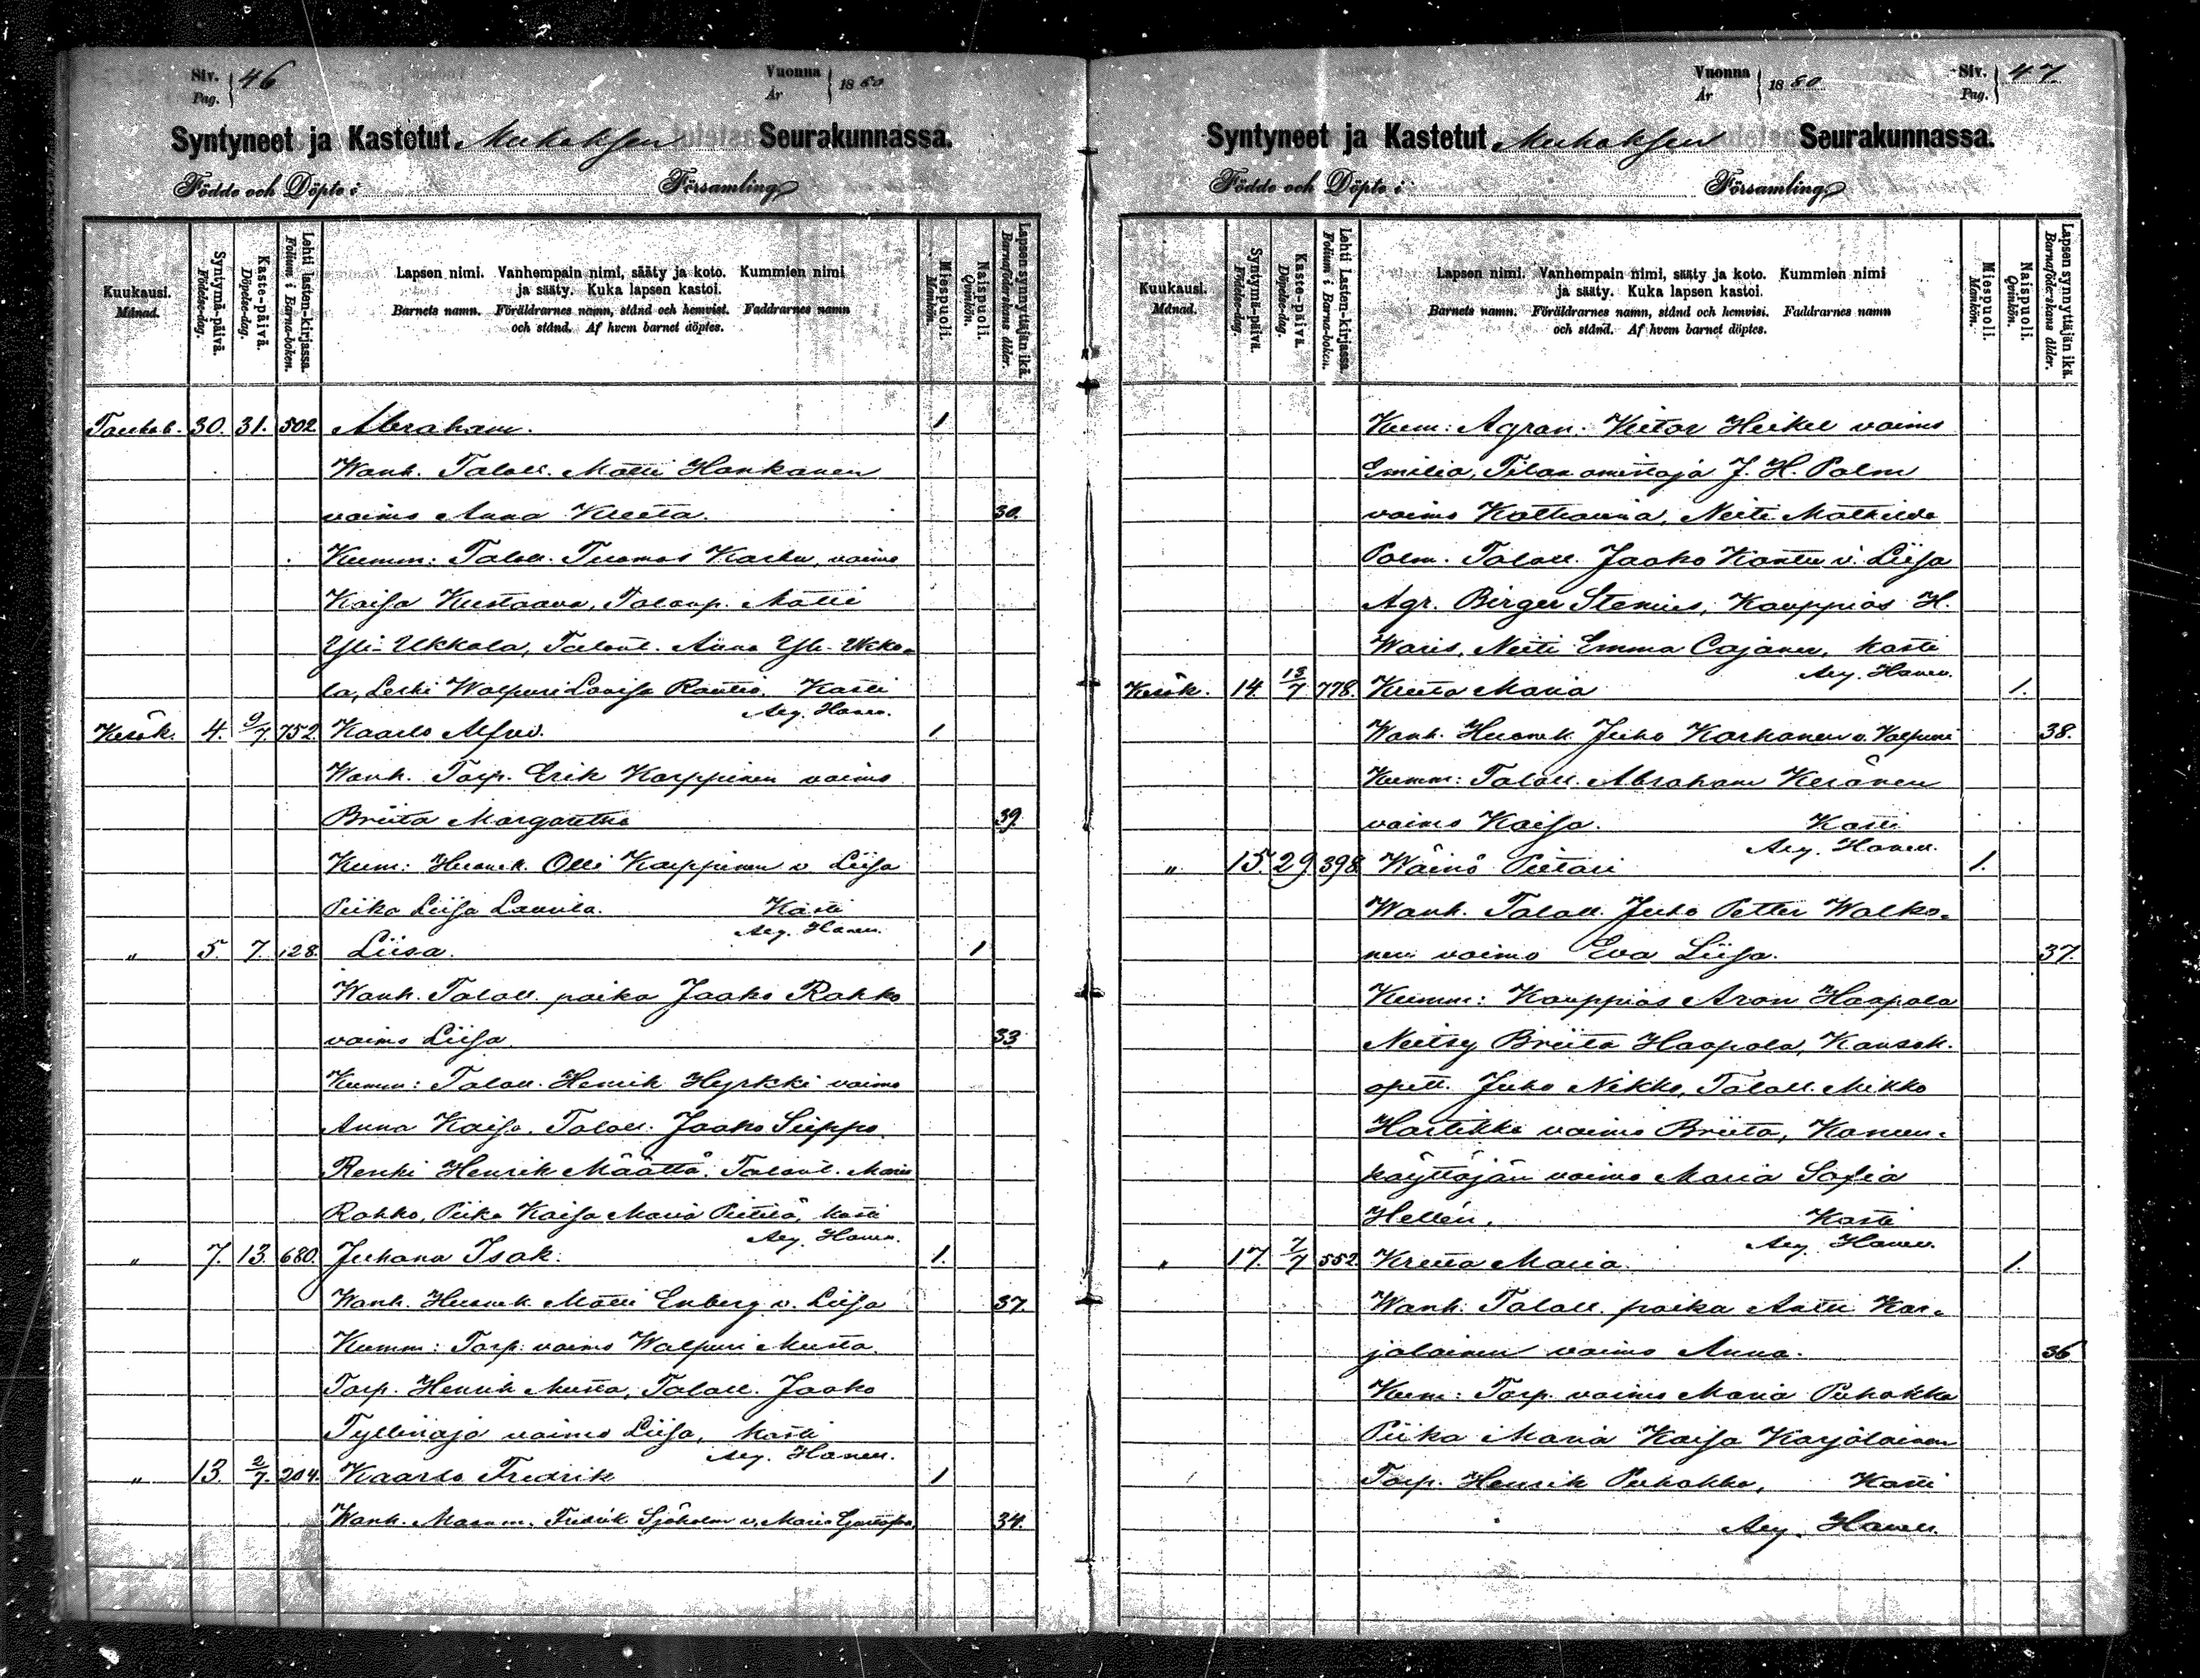 Siv. Pag. 46
Vuonna År 1880
Syntyneet ja Kastetut Muhoksen Seurakunnassa.
Födde och Döpte i Församling
Kuukausi. Månad.
Syntymä-päivä. Födelse-dag.
Kaste-päivä. Döpelse-dag.
Lehti lasten-kirjassa. Folium i Barna-boken.
Lapsen nimi. Vanhempain nimi, sääty ja koto. Kummien nimi
ja sääty. Kuka lapsen kastoi.
Barnets namn. Föräldrarnes namn, stånd och hemvist. Faddrarnes namn
och stånd. Af hvem barnet döptes.
Miespuoli. Mankön.
Naispuoli. Qvinkön.
Lapsen synnyttäjän ikä. Barnaföderskans ålder.
Toukok. 30. 31. 502 Abraham. 1
Wanh. Taloll. Matti Hankanen
vaimo Anna Kreeta. 30.
Kumm: Taloll. Tuomas Karhu, vaimo
Kaisa Kustaava, Talonp. Matti
Yli-Ukkola, Talont. Anna Yli-Ukko-
la, Leski Walpuri Lovisa Rautio. Kasti
Aey. Haven.
Kesäk. 4. 9/7 752. Kaarlo Alfred. 1
Wanh. Torp. Erik Karppinen vaimo
Briita Margaretha 39.
Kum: Huonek. Olli Karppinen v. Liisa
Piika Liisa Laurila. Kasti
Aey. Haven.
" 5. 7. 128. Liisa. 1
Wanh. Taloll. poika Jaako Rahko
vaimo Liisa. 33
Kumm: Taloll. Henrik Hyrkki vaimo
Anna Kaisa. Taloll. Jaako Seppo.
Renki Henrik Määttä. Talont. Maria
Rahko, Piika Kaisa Maria Pietilä, kasti
Aey. Haven.
" 7. 13. 680. Juhana Isak. 1.
Wanh. Huonek. Matti Enberg v. Liisa 37.
Kumm: Torp. vaimo Walpuri Musta.
Torp. Henrik Musta, Taloll. Jaako
Tyllinaja vaimo Liisa, kasti
Aey. Haven.
" 13. 2/7. 204. Kaarlo Fredrik 1
Wanh. Fredrik Sjöholm v. Maria 34.
Vuonna År 1880
Siv. Pag. 47
Syntyneet ja Kastetut Muhoksen Seurakunnassa.
Födde och Döpte i Församling
Kuukausi. Månad.
Syntymä-päivä. Födelse-dag.
Kaste-päivä. Döpelse-dag.
Lehti Lasten-kirjassa. Folium i Barna-boken.
Lapsen nimi. Vanhempain nimi, sääty ja koto. Kummien nimi
ja sääty. Kuka lapsen kastoi.
Barnets namn. Föräldrarnes namn, stånd och hemvist. Faddrarnes namn
och stånd. Af hvem barnet döptes.
Miespuoli. Mankön.
Naispuoli. Qvinkön.
Lapsen synnyttäjän ikä. Barnaföderskans ålder.
Kum: Agron. Viktor Heikel vaimo
Emilia, Tilan omistaja J. H. Palm
vaimo Katharina, Neiti Mathilda
Palm. Taloll. Jaako Kantu v. Liisa
Agr. Birger Stenius, Kauppias H.
Waris, Neiti Emma Cajaner, kasti
Aey. Haven.
Kesäk. 14. 13/7 778. Kreeta Maria 1.
Wanh. Huonek. Juho Karhanen v. Valpuri 38.
Kumm: Taloll. Abraham Keränen
vaimo Kaisa. Kasti
Aey. Haven.
" 15. 29. 398 Wäinö Pietari 1.
Wanh. Taloll. Juho Petter Walko-
nen vaimo Eva Liisa. 37.
Kumm: Kauppias Aron Haapala
Neitsy Briita Haapala, Kansak.
opett. Juho Nikko, Taloll. Mikko
Hartikka vaimo Briita, Koneen-
käyttäjän vaimo Maria Sofia
Hellén. Kasti
Aey. Haven.
" 17. 7/7 552. Kreeta Maria. 1.
Wanh: Taloll. poika Antti Kar-
jalainen vaimo Anna. 36
Kum: Torp. vaimo Maria Puhakka
Piika Maria Kaisa Karjalainen
Torp. Henrik Puhakka, Kasti
Aey. Haven.